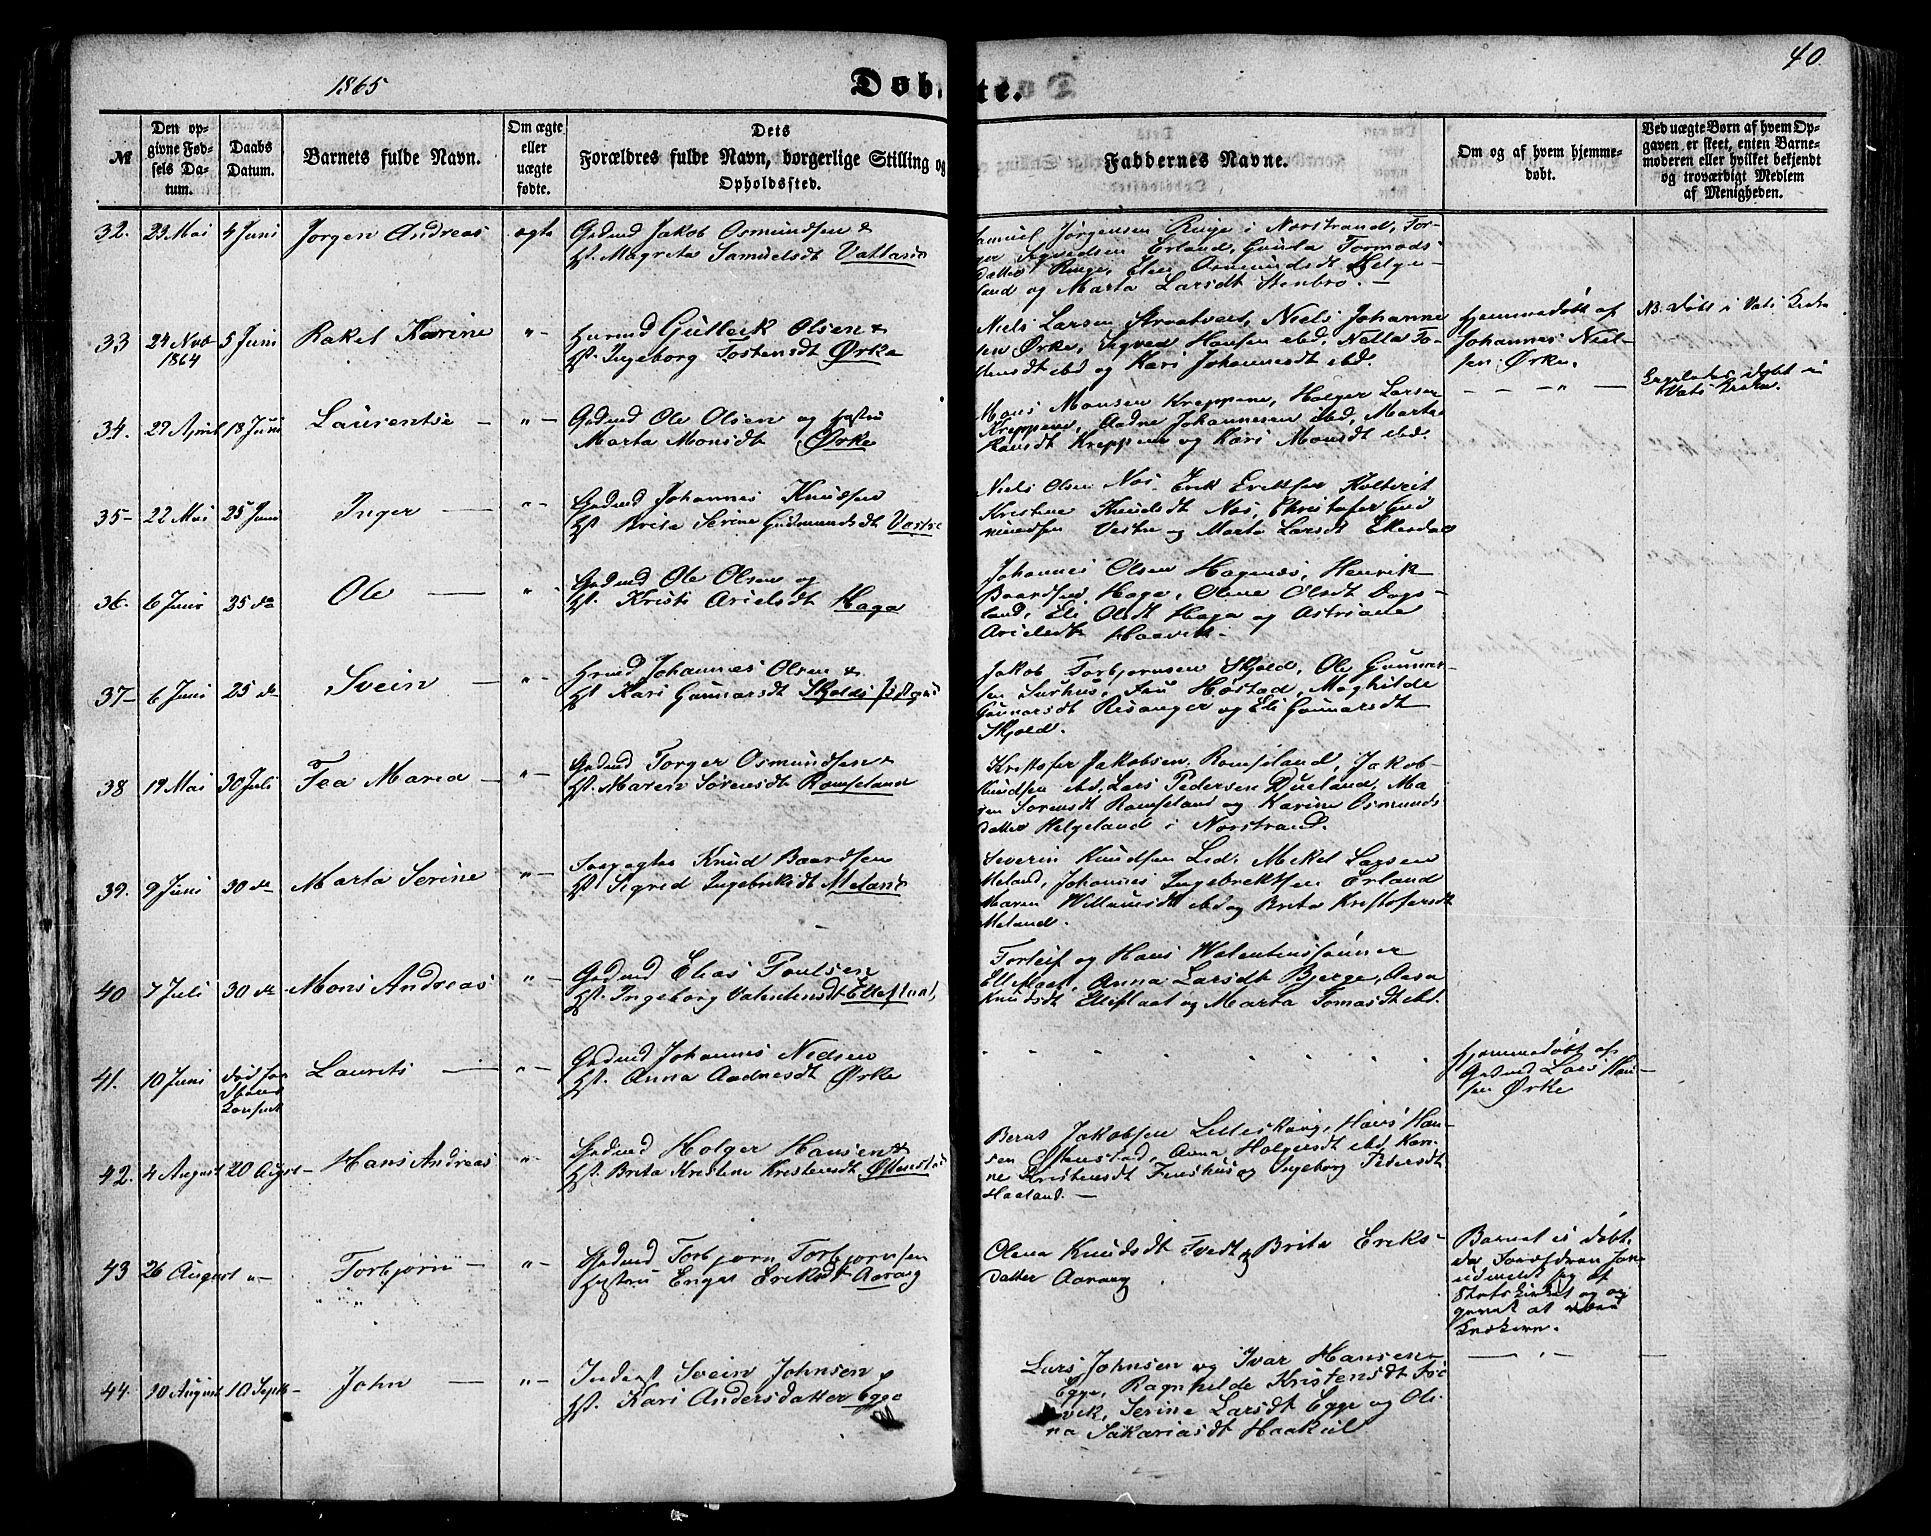 1865
Døbte.
40
№
Den op-
givne Fød-
sels Da-
tum.
Daabs
Datum.
Barnets fulde Navn.
Om ægte
eller
uægte
fødte.
Dets
Forældres fulde Navn, borgerlige Stilling og
Opholdssted.
Faddernes Navne.
Om og af hvem hjemme-
døbt.
Ved uægte Børn af hvem Op-
gaven er skeet, enten Barne-
moderen eller hvilket bekjendt
og troværdigt Medlem
af Menigheden.
32. 23 Mai 4 Juni Jørgen Andreas ægte
Gdmd Jakob Osmundsen &
Hst. Magreta Samuelsdt Vatland
Samuel Jørgensen Ringe i Norstrand, Tor-
ger Sigvedsen Erland, Gunla Tormods-
datter Ringe, Elen Osmundsdt Helge-
land og Marta Larsdt Stenbro. —
33 24 Nvb 5 Juni Rakel Karine " -
1864
Husmd Gutleik Olsen &
Hst. Ingeborg Tostensdt Ørke
Niels Larsen Straatveit, Niels Johanne
sen Ørke, Sigved Hansen ebd, Nella To-
stensdt ebd og Kari Johannesdt ebd.
Hjemmedøbt af
Johannes Niel-
sen Ørke.
NB. Døbt i Vats Kirke
34. 27 April 18 Juni Laurentse — " -
Gdmd Ole Olsen og Hustru
Marta Monsdt Ørke
Mons Monsen Kreppene, Holger Larsen
Kreppene, Aadne Johannesen ibd, Marta
Hansdt Kreppene og Kari Monsdt ebd.
— — " —
Ligeledes døbt i
Vats Kirke.
35- 22 Mai 25 Juni Inger — " -
Gdmd Johannes Knudsen
Hst. Brita Serine Gudmundsdt Vestre
Niels Olsen Nos, Erik Eriksen Holtveit
Kristine Knudsdt Nos, Christofer Gud
mundsen Vestre og Marta Larsdt Ekredal
36. 6 Juni 25 do Ole — "
Gdmd Ole Olsen og
Hst. Kristi Arielsdt Haga
Johannes Olsen Hagenæs, Henrik
Baardsen Haga, Olene Olsdt Dags-
land, Eli Olsdt Haga og Astriane
Arielsdt Haavik. —
37- 6 Juni 25 do Svein — " -
Hmd Johannes Olsen &
Hst Kari Gunnarsdt Skjolds
Jakob Torbjørnsen Skjold, Ole Gunnar-
sen Surhus, Hostad, Maghilde
Gunnarsdt Risanger og Eli Gunnarsdt
Skjold.
38 19 Mai 30 Juli Tea Maria — " -
Gdmd Torger Osmundsen &
Hst. Maren Sørensdt Ramseland
Kristofer Jakobsen Ramseland, Jakob
Knudsen ebd, Lars Pedersen Dueland, Ma
ren Sørensdt Ramseland og Karine Osmunds
datter Helgeland i Norstrand.
39. 9 Juni 30 do Marta Serine " -
Knud Baardsen
Hst Sigrid Ingebriktsdt Meland
Severin Knudsen Lid, Mikel Larsen
Meland, Johannes Ingebriktsen Erland
Maren Willumsdt ebd og Brita Kristofersdt
Meland.
40 7 Juli 30 do Mons Andreas " -
Gdmd Elias Poulsen
Hst. Ingeborg Valentinsdt Elleflaat
Torleif og Hans Walentinssønner
Elleflaat, Anna Larsdt Bjerge, Aasa
Knudsdt Elleflaat og Marta Tomasdt ebd.
41. 10 Juni død før
Laurits — " -
Gdmd Johannes Nielsen
Hst. Anna Aadnesdt Ørke
Hjemmedøbt af
Gdmd Lars Han-
sen Ørke
42. 4 August 20 August Hans Andreas " -
Gdmd Holger Hansen &
Hst. Brita Kristine Kristensdt Østenstad
Bernt Jakobsen Lilleskaug, Hans Han-
sen Østenstad, Anna Holgersdt ebd, Kari-
ne Kristensdt Finshus og Ingeborg Pedersdt
Haaland. —
43 26 August " - Torbjørn — " -
Gdmd Torbjørn Torbjørnsen
Hustru Enger Eriksdt Aarvag
Olena Knudsdt Tvedt og Brita Eriks-
datter Aarvag
Barnet er døbt,
44. 20 August 10 Septb John — " -
Inderst Svein Johnsen &
Hst. Kari Andersdatter Egge
Lars Johnsen og Ivar Hansen
Egge, Ragnhilde Kristensdt
vik, Serine Larsdt Egge og Oli-
na Sakariasdt Haakul